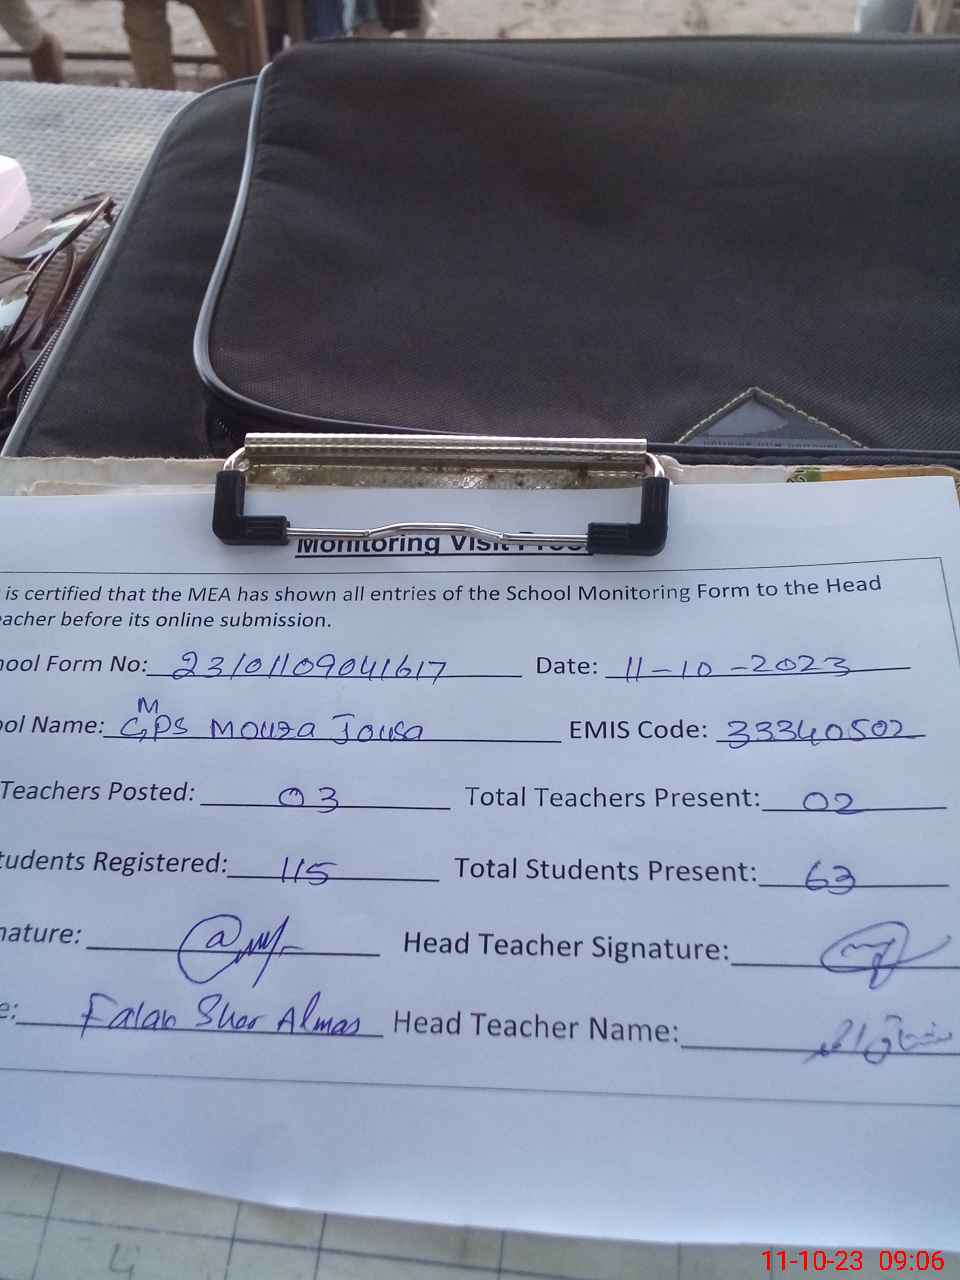 Monitoring Visit Proof
is certified that the MEA has shown all entries of the School Monitoring Form to the Head
eacher before its online submission.
hool Form No: 23101109041617 Date: 11-10-2023
ool Name: GMPS Mouza Jousa EMIS Code: 33340502
Teachers Posted: 03 Total Teachers Present: 02
tudents Registered: 115 Total Students Present: 63
nature: Head Teacher Signature:
e: Falak Sher Almas Head Teacher Name:
11-10-23 09:06